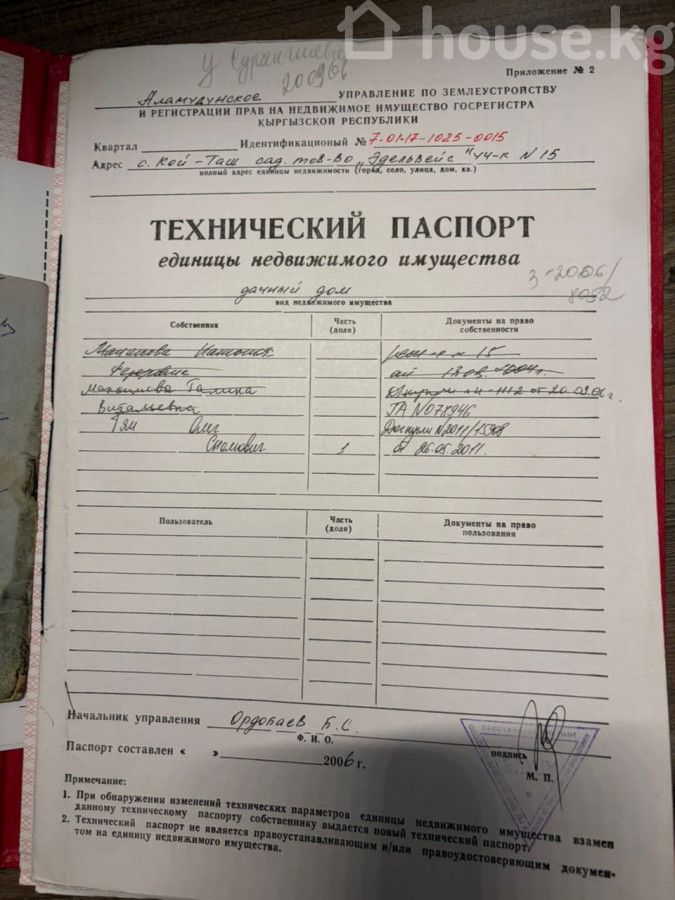 house.kg
у Суранчиева
200906
Приложение № 2
Аламудунское УПРАВЛЕНИЕ ПО ЗЕМЛЕУСТРОЙСТВУ
И РЕГИСТРАЦИИ ПРАВ НА НЕДВИЖИМОЕ ИМУЩЕСТВО ГОСРЕГИСТРА
КЫРГЫЗСКОЙ РЕСПУБЛИКИ
Квартал Идентификационый № 7-01-17-1025-0015
Адрес с. Кой-Таш сад. тов-во "Эдельвейс" уч-к N 15
полный адрес единицы недвижимости (город, село, улица, дом, кв.)
ТЕХНИЧЕСКИЙ ПАСПОРТ
единицы недвижимого имущества
3-2006/
8052
дачный дом
вид недвижимого имущества
Собственник Часть (доля) Документы на право собственности
N 15
Максимова Галина от 20.09.06г.
Витальевна ГА N078946
Тян Олег Дог купли N2011/
1 от 26.05.2011.
Пользователь Часть (доля) Документы на право пользования
Начальник управления Ордобаев Б.С.
Ф. И. О.
подпись
Паспорт составлен « » 2006 г.
М. П.
Примечание:
1. При обнаружении изменений технических параметров единицы недвижимого имущества взамен
данному техническому паспорту собственнику выдается новый технический паспорт.
2. Технический паспорт не является правоустанавливающим и/или правоудостоверяющим докумен-
том на единицу недвижимого имущества.